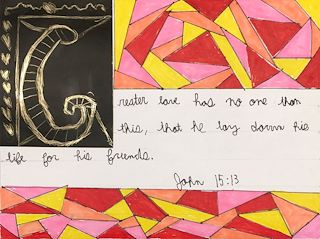 Greater love has no one than
this, that he lay down his
life for his friends.
John 15:13